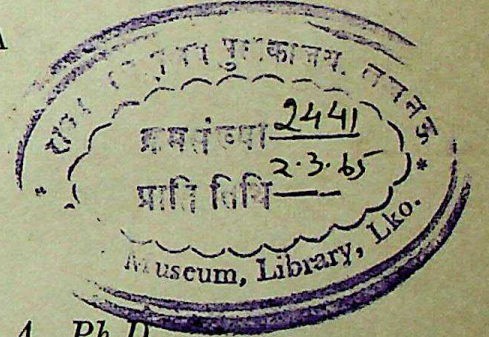 A
पुस्तकालय, लखनऊ
क्रमसंख्या 2441
प्राप्ति तिथि 2.3.65
Museum, Library, Lko.
A., Ph.D.